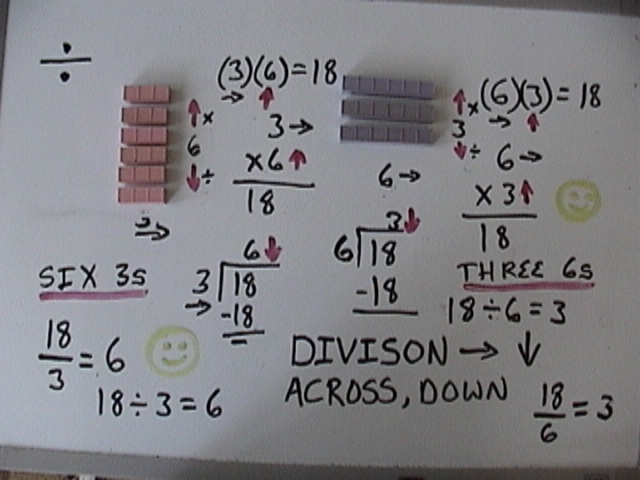 ÷
(3)(6)=18
→ ↑
↑×
6
↓÷
3→
×6↑
18
3→
SIX 3s
6↓
3)18
→ -18
18/3 = 6
18÷3=6
(6)(3)=18
→ ↑
↑×
3
↓÷
6→
×3↑
18
6→
3↓
6)18
-18
THREE 6s
18÷6=3
DIVISON → ↓
ACROSS, DOWN
18/6 = 3